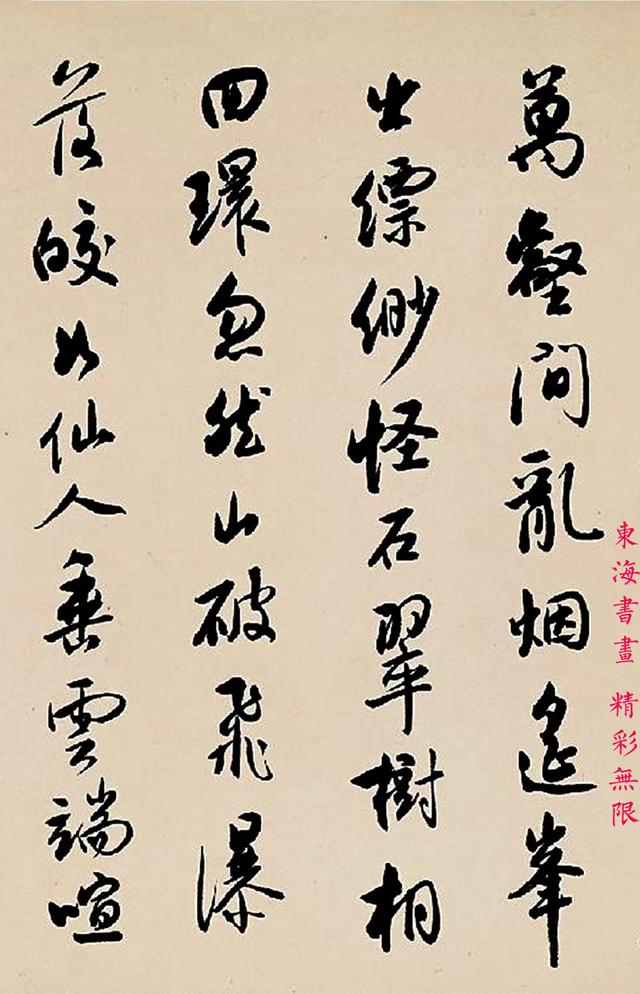 萬壑間亂烟遙峯
出縹緲怪石翠樹相
回環忽然山破飛瀑
落皎如仙人垂雲端喧
東海書畫 精彩無限